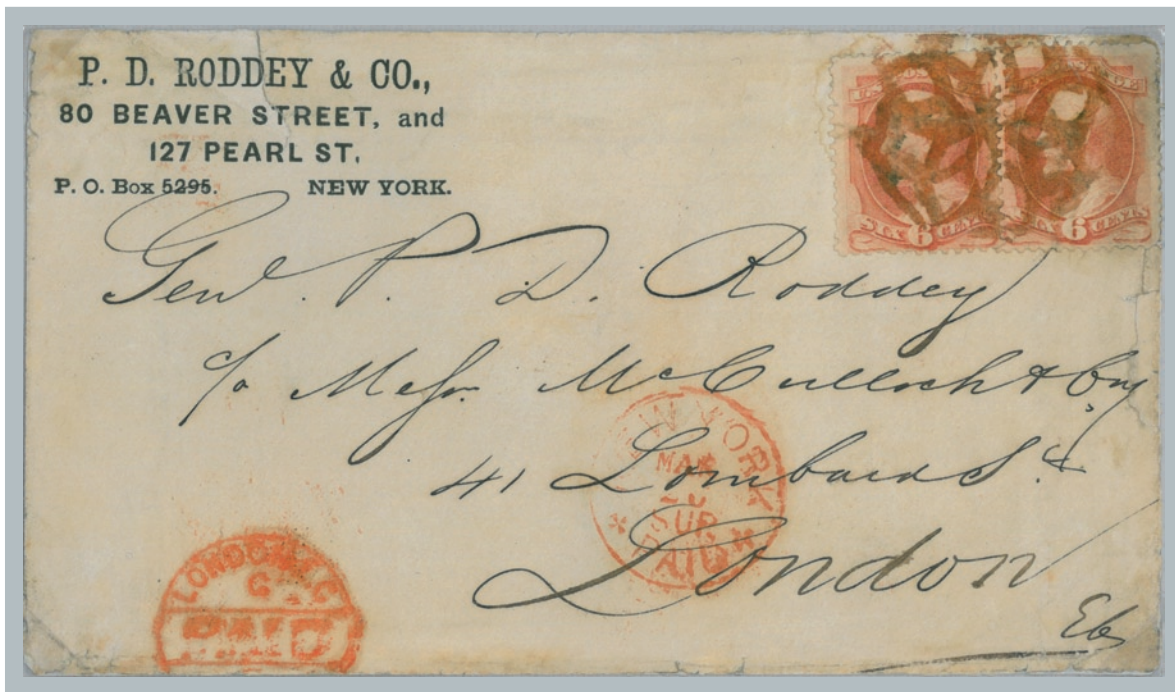 P. D. RODDEY & CO.,
80 BEAVER STREET, and
127 PEARL ST.
P. O. Box 5295. NEW YORK.
SIX 6 CENTS
SIX 6 CENTS
Genl. P. D. Roddey
c/o Messr. McCulloch & Co
41 Lombard St
London
NEW YORK
MAR
SUP
PAID
LONDON E.C
PAID